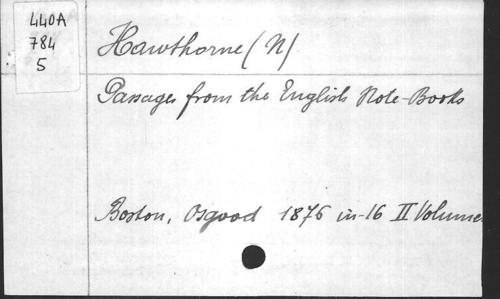 440A
784
5
Hawthorne (N)
Passages from the English Note-Books
Boston, Osgood 1876 in-16 II Volumes